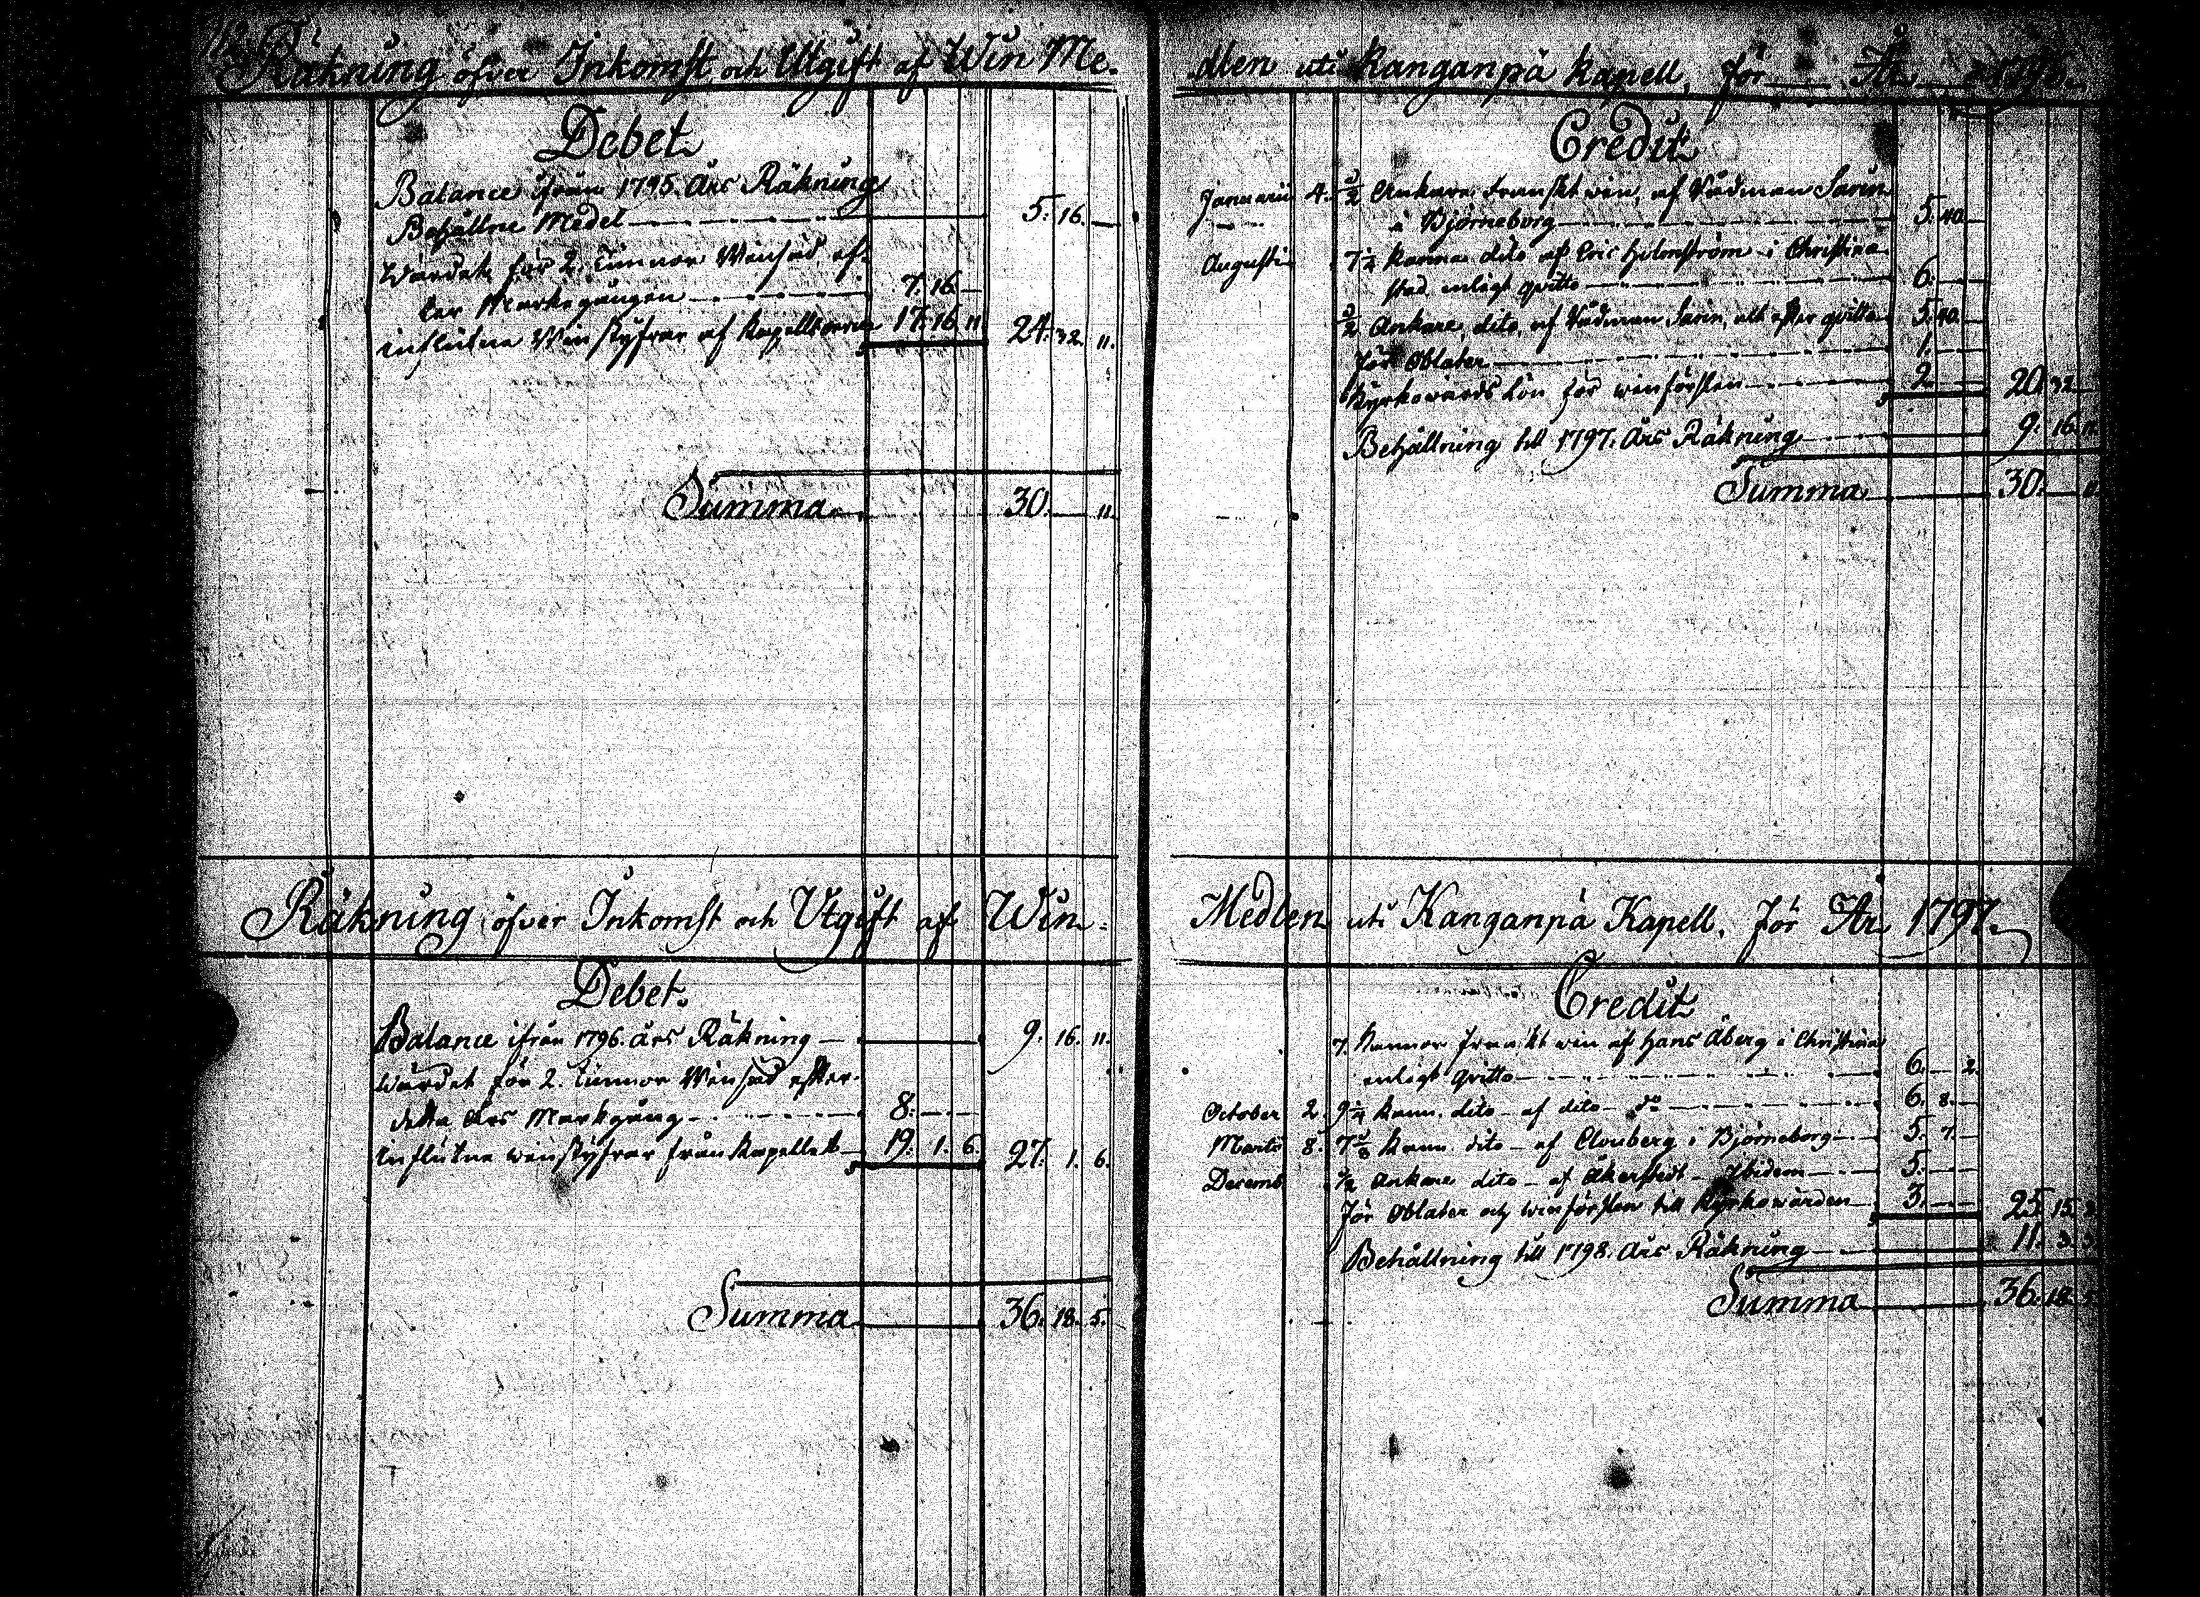 Räkning öfver Inkomst och Utgift af Win Me-
Debet
Balance ifrån 1795. Års Räkning
Behållne Medel 5. 16. —
Wärdet för 2. Tunnor Winsäd ef-
ter Markegången 7. 16. —
influtne Winstyfrar af Kapellboerne 17. 16. 11 24. 32. 11.
Summa 30. — 11.
dlen uti Kanganpä Kapell, för År 1796.
Credit
Januarii 4. ½ Ankare Franskt win, af Rådman Sarin
i Björneborg 5. 40. —
Augusti 7¼ Kanna dito af Eric Holmström i Christine
stad enligt qvitto 6. — —
½ Ankare dito, af Rådman Sarin, allt efter qvitto 5. 40. —
för Oblater 1. — —
Kyrkowärds Lön för winförslen 2 — — 20. 32. —
Behållning till 1797. Års Räkning 9. 16. 11.
Summa 30. — 11
Räkning öfver Inkomst och Utgift af Win-
Debet.
Balance ifrån 1796. års Räkning 9. 16. 11.
Wärdet för 2. Tunnor Winsäd efter
detta års Markgång 8. — —
Influtne winstyfrar från Kapellet 19. 1. 6. 27. 1. 6.
Summa 36. 18. 5.
Medlen uti Kanganpä Kapell, för År 1797.
Credit
7. Kannor franskt win af Hans Åberg i Christina
enligt qvitto 6. — 2.
October 2. 9¼ kann. dito af dito do 6. 8. —
Martii 8. 7⅜ kann. dito af Clouberg i Björneborg 5. 7. —
Decemb ½ Ankare dito af Åkerstedt Ibidem 5. — —
för Oblater och winförslen till Kyrkowärden 3. — — 25. 15. 2
Behållning till 1798. Års Räkning 11. 3. 3.
Summa 36. 18. 5